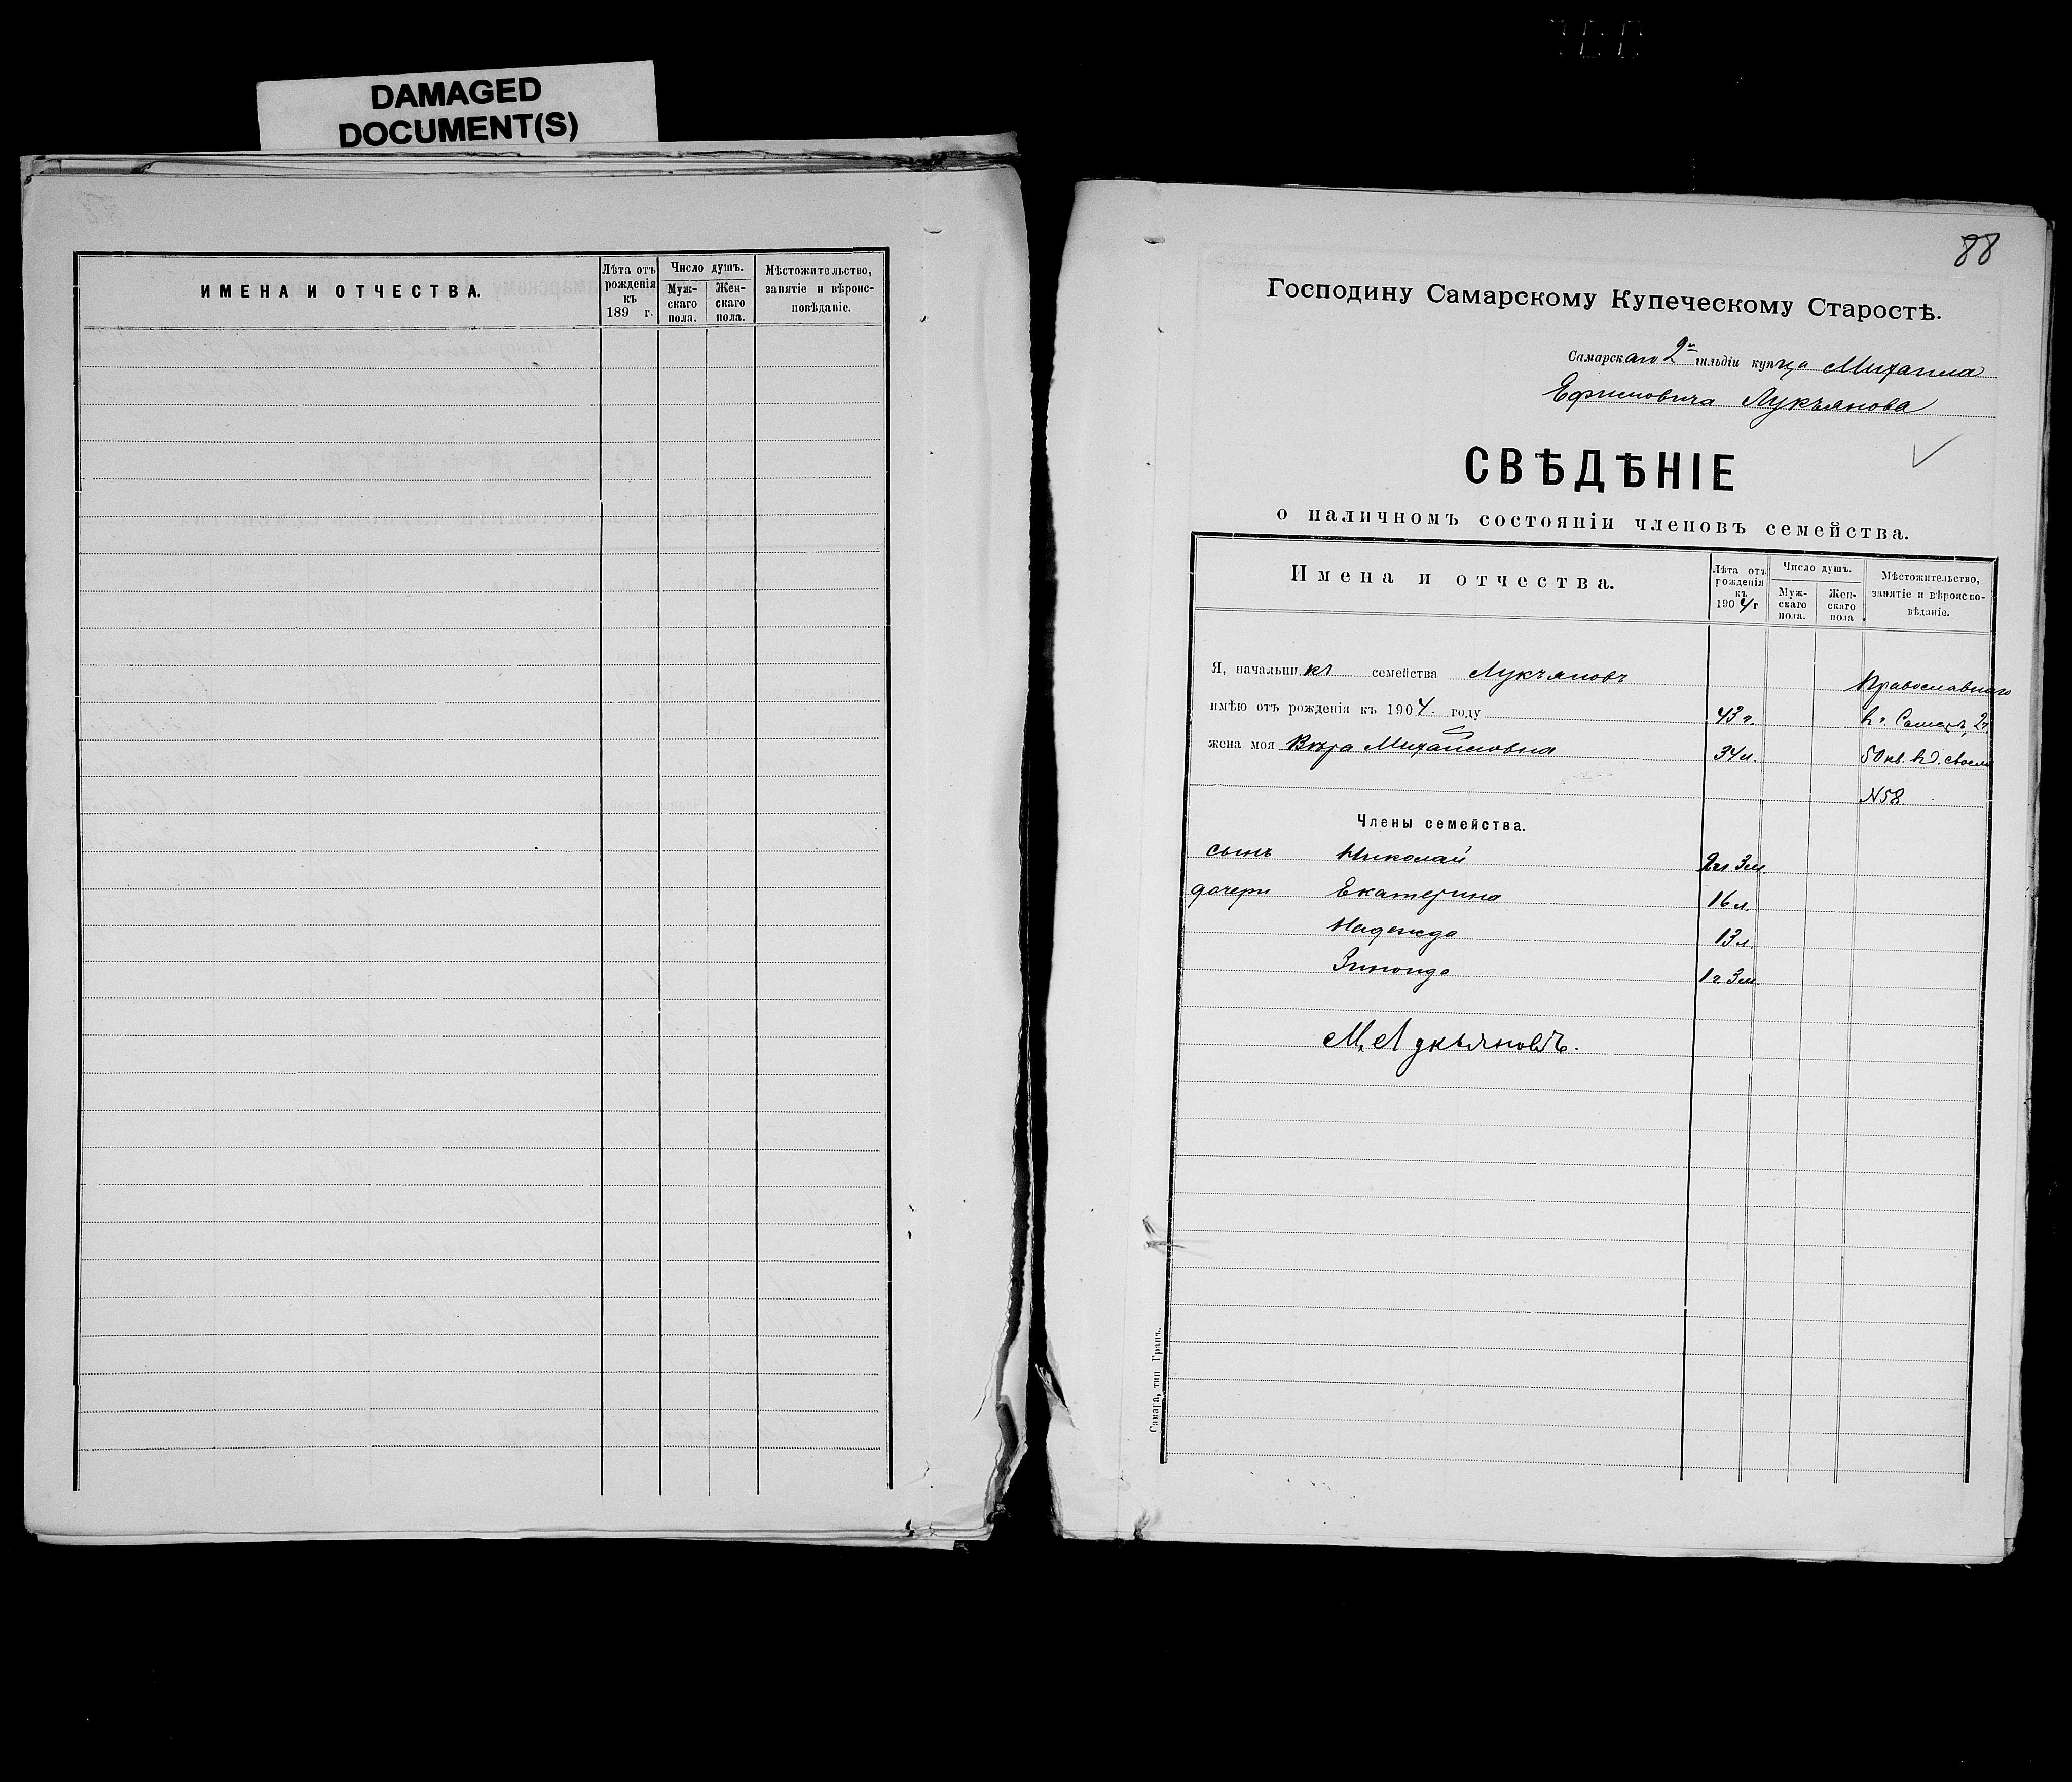 DAMAGED
DOCUMENT(S)
ИМЕНА И ОТЧЕСТВА.
Лѣта отъ рожденія къ 189 г.
Число душъ.
Мужскаго пола.
Женскаго пола.
Мѣстожительство, занятіе и вѣроисповѣданіе.
88
Господину Самарскому Купеческому Старостѣ.
Самарскаго 2й гильдіи купца Михаила
Ефимовича Лукъянова
СВѢДѢНІЕ
о наличномъ состояніи членовъ семейства.
Имена и отчества.
Лѣта отъ рожденія къ 1904 г
Число душъ.
Мужскаго пола.
Женскаго пола
Мѣстожительство, занятіе и вѣроисповѣданіе.
Я, начальникъ семейства Лукъяновъ Православнаго
имѣю отъ рожденія къ 1904. году 43 г. въ г. 2й
жена моя Вѣра Михайловна 34 л. 50 кв. в д. своемъ
N 58.
Члены семейства.
сынъ Николай 3 м.
дочери Екатерина 16 л.
Надежда 13 л.
Зинаида 1 г. 3 м.
М. Лукьяновъ.
Самара, тип Гранъ.